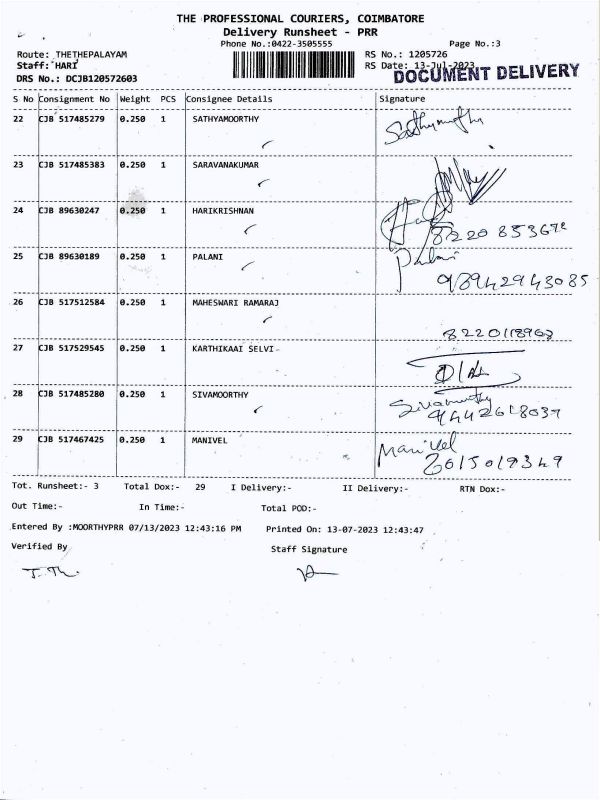 THE PROFESSIONAL COURIERS, COIMBATORE
Delivery Runsheet - PRR
Phone No.:0422-3505555 Page No.:3
Route: THETHEPALAYAM RS No.: 1205726
Staff: HARI RS Date: 13-Jul-2023
DOCUMENT DELIVERY
DRS No.: DCJB120572603
S No Consignment No Weight PCS Consignee Details Signature
22 CJB 517485279 0.250 1 SATHYAMOORTHY Sathyamurthy
23 CJB 517485383 0.250 1 SARAVANAKUMAR
24 CJB 89630247 0.250 1 HARIKRISHNAN
25 CJB 89630189 0.250 1 PALANI Palani
98942943085
26 CJB 517512584 0.250 1 MAHESWARI RAMARAJ
8220118968
27 CJB 517529545 0.250 1 KARTHIKAAI SELVI
28 CJB 517485280 0.250 1 SIVAMOORTHY Sivamurthy
9442618037
29 CJB 517467425 0.250 1 MANIVEL Manivel
8015019349
Tot. Runsheet:- 3 Total Dox:- 29 I Delivery:- II Delivery:- RTN Dox:-
Out Time:- In Time:- Total POD:-
Entered By :MOORTHYPRR 07/13/2023 12:43:16 PM Printed On: 13-07-2023 12:43:47
Verified By Staff Signature